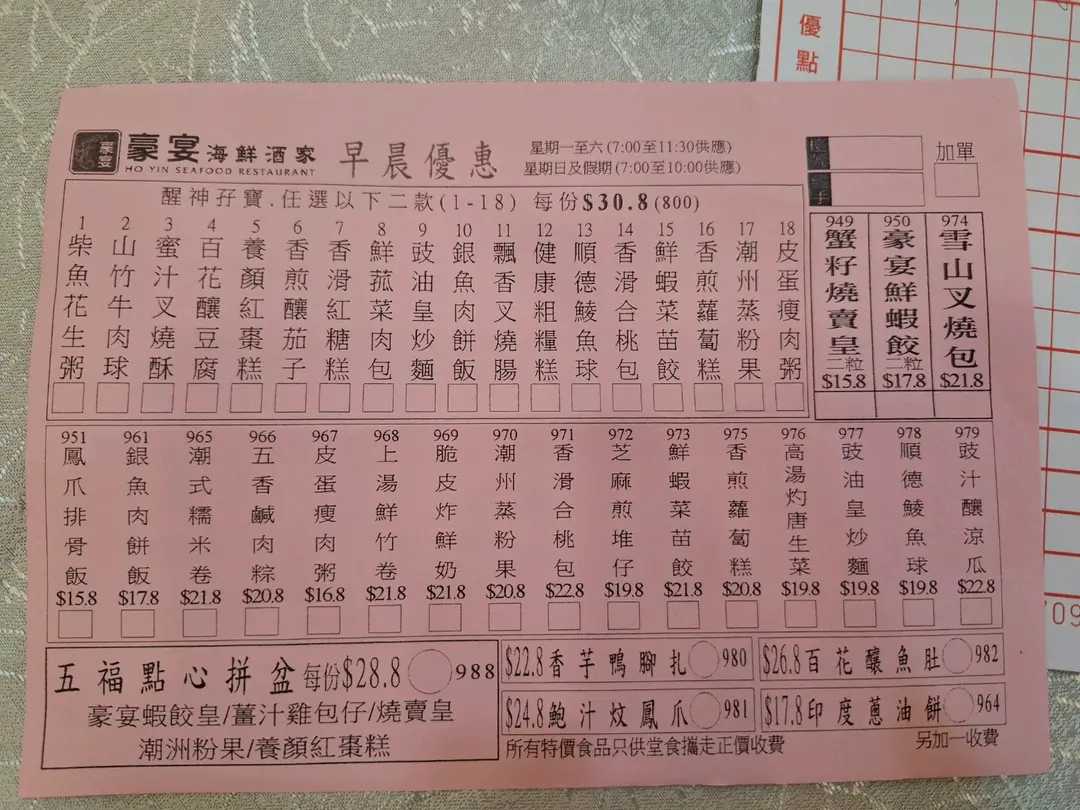 優點
豪宴海鮮酒家 早晨優惠
HO YIN SEAFOOD RESTAURANT
星期一至六(7:00至11:30供應)
星期日及假期(7:00至10:00供應)
加單
醒神孖寶.任選以下二款(1-18) 每份$30.8(800)
1 柴魚花生粥
2 山竹牛肉球
3 蜜汁叉燒酥
4 百花釀豆腐
5 養顏紅棗糕
6 香煎釀茄子
7 香滑紅糖糕
8 鮮菰菜肉包
9 豉油皇炒麵
10 銀魚肉餅飯
11 飄香叉燒腸
12 健康粗糧糕
13 順德鯪魚球
14 香滑合桃包
15 鮮蝦菜苗餃
16 香煎蘿蔔糕
17 潮州蒸粉果
18 皮蛋瘦肉粥
949 蟹籽燒賣皇 二粒 $15.8
950 豪宴鮮蝦餃 二粒 $17.8
974 雪山叉燒包 $21.8
951 鳳爪排骨飯 $15.8
961 銀魚肉餅飯 $17.8
965 潮式糯米卷 $21.8
966 五香鹹肉粽 $20.8
967 皮蛋瘦肉粥 $16.8
968 上湯鮮竹卷 $21.8
969 脆皮炸鮮奶 $21.8
970 潮州蒸粉果 $20.8
971 香滑合桃包 $22.8
972 芝麻煎堆仔 $19.8
973 鮮蝦菜苗餃 $21.8
975 香煎蘿蔔糕 $20.8
976 高湯灼唐生菜 $19.8
977 豉油皇炒麵 $19.8
978 順德鯪魚球 $19.8
979 豉汁釀涼瓜 $22.8
五福點心拼盆 每份$28.8 988
豪宴蝦餃皇/薑汁雞包仔/燒賣皇
潮洲粉果/養顏紅棗糕
$22.8香芋鴨腳扎 980
$26.8百花釀魚肚 982
$24.8鮑汁炆鳳爪 981
$17.8印度蔥油餅 964
所有特價食品只供堂食攜走正價收費
另加一收費